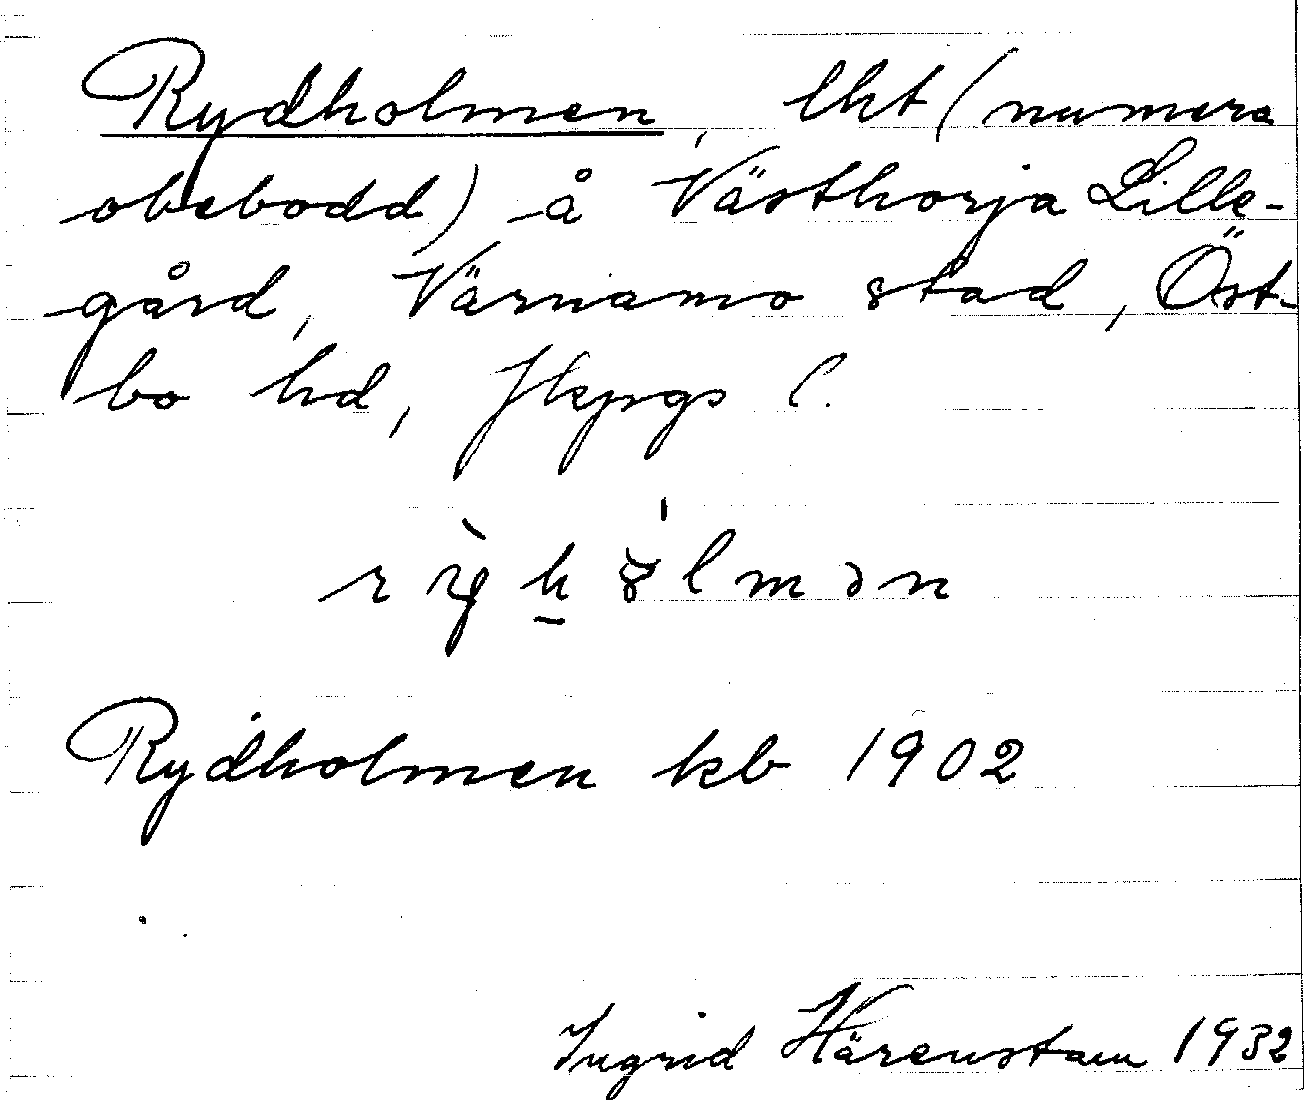 Rydholmen, lht (numera
obebodd) å Västhorja Lille-
gård, Värnamo stad, Öst-
bo hd, Jkpgs l.
Rydholmen kb 1902
Ingrid Härenstam 1932